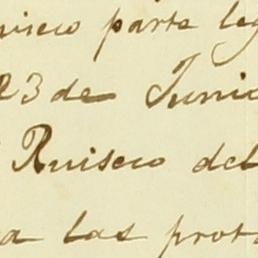 parte leg
23 de Junio
Ruiseco del
a las prot